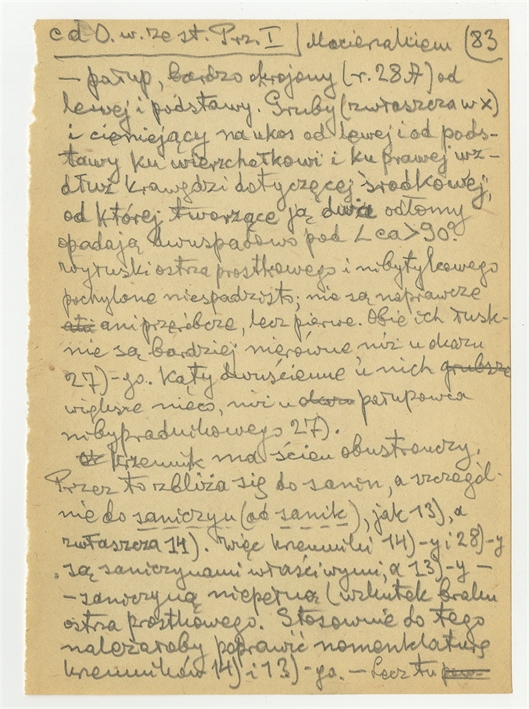 cd O. w. ze st. Prz. I / Macierzakiem (83
— pałup, bardzo okrojony (r. 28.A) od
lewej i podstawy. Gruby (zwłaszcza w x)
i cieniejący na ukos od lewej i od pods-
tawy ku wierzchołkowi i ku prawej wz-
dłuż krawędzi dotyczącej środkowej,
od której tworzące ją dwa odłomy
opadają dwuspadowo pod L ca > 90°.
Wyłuski ostrza prostkowego i nibytylcowego
pochylone niespadzisto; nie są naprawcze
ani przeróbcze, lecz pierwe. Obie ich łusk-
nie są bardziej nierówne, niż u okazu
27)-go. Kąty dwuścienne u nich grubsze
większe nieco, niż u okazu pałupowca
nibyprądnikowego 27).
Krzemnik ma ścien obustronczy.
Przez to zbliża się do sanin, a szczegól-
nie do saniczyn (od sanik), jak 13), a
zwłaszcza 14). Więc krzemniki 14)-y i 28)-y
są saniczynami właściwymi, a 13)-y —
— saniczyną niepełną (wskutek braku
ostrza prostkowego. Stosownie do tego
należałoby poprawić nomenklaturę
krzemników 14) i 13)-go. — Lecz tu